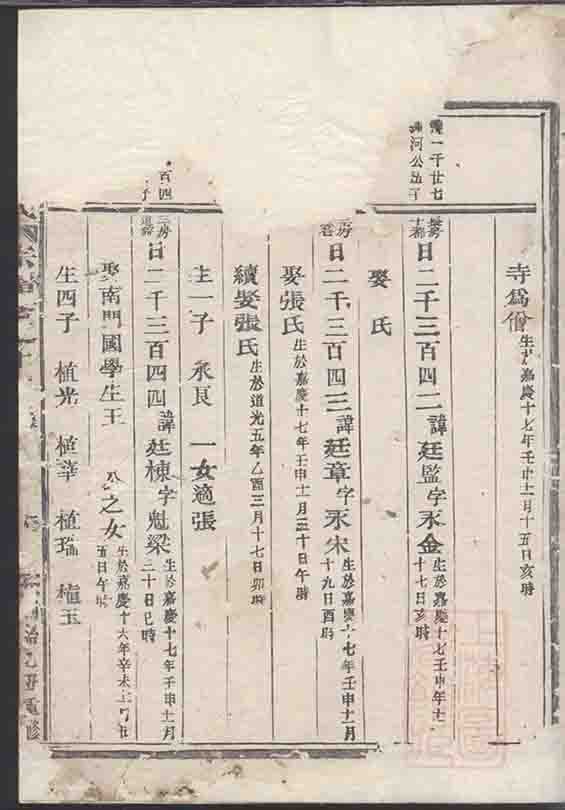 寺爲僧 生於嘉慶十七年壬申十一月十五日亥時
一千廿七
河公
日二千三百四二諱廷監字永金 生於嘉慶十七壬申年十 十七日亥時
娶 氏
日二千三百四三諱廷章字永宋 生於嘉慶十七年壬申十一月 十九日酉時
娶張氏 生於嘉慶十七年壬申十月三十日午時
續娶張氏 生於道光五年乙酉三月十七日卯時
生一子 永良 一女適張
百四
子
日二千三百四四諱廷棟字魁梁 生於嘉慶十七年壬申十一月 二十日巳時
娶南門國學生王 公之女 生於嘉慶十六年辛未 五日午時
生四子 植光 植華 植瑞 植玉
治乙亥重修